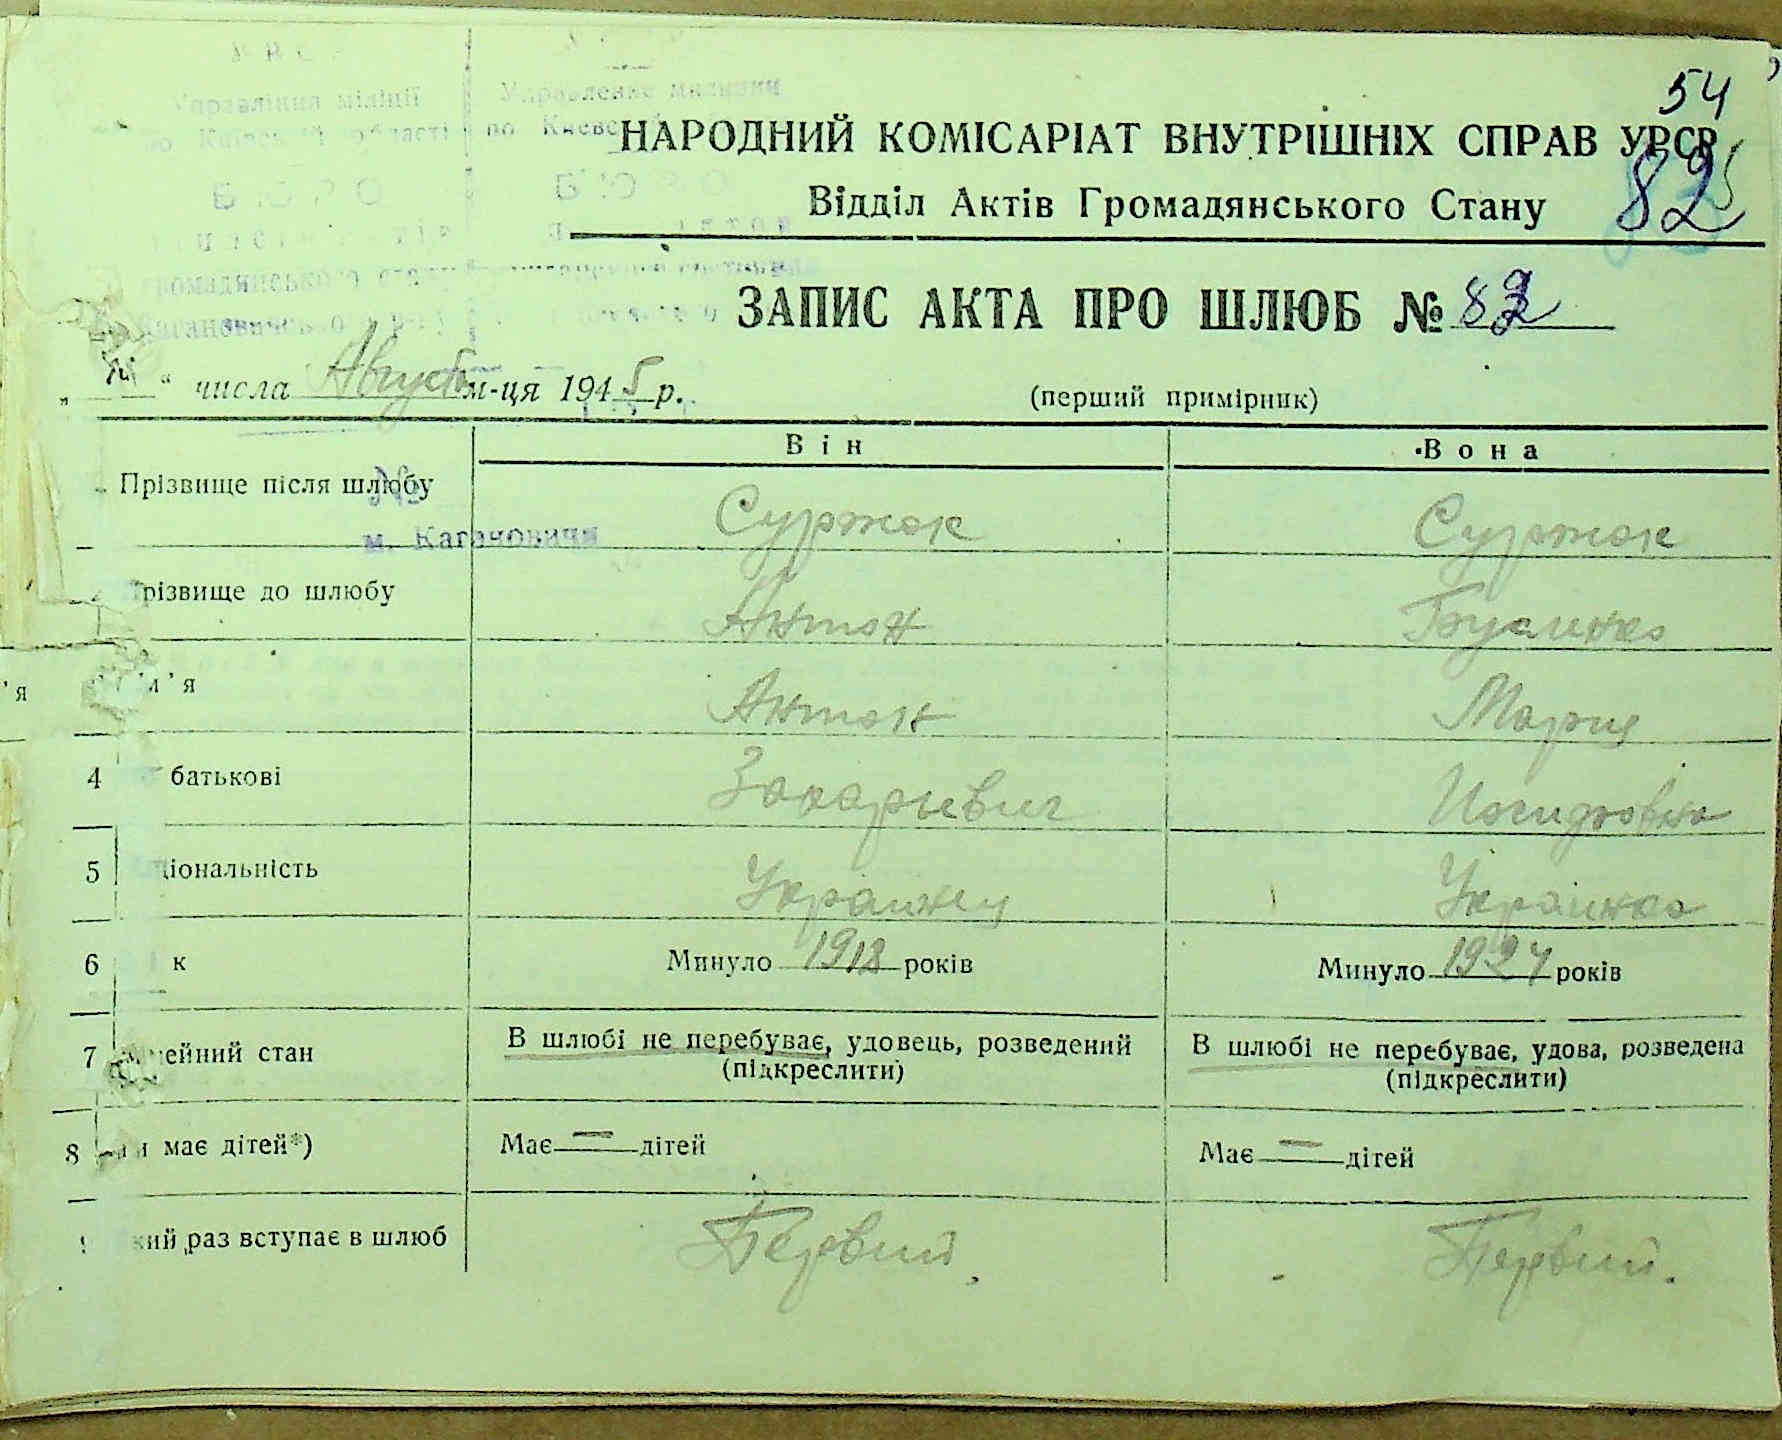 Управління міліції Управление милиции
по Київській області по Киевской
БЮРО БЮРО
громадянського
Кагановичського
54
НАРОДНИЙ КОМІСАРІАТ ВНУТРІШНІХ СПРАВ УРСР
82
Відділ Актів Громадянського Стану
ЗАПИС АКТА ПРО ШЛЮБ № 82
„ “ числа Август м-ця 1945 р. (перший примірник)
Він Вона
Прізвище після шлюбу Суржок Суржок
№
м. Кагановичи
різвище до шлюбу Антон
'я м'я Антон Мария
4 батькові Захарьевич
5 ціональність Украинец Украинка
6 к Минуло 1918 років Минуло 1924 років
7 мейний стан В шлюбі не перебуває, удовець, розведений В шлюбі не перебуває, удова, розведена
(підкреслити) (підкреслити)
8 и має дітей*) Має — дітей Має — дітей
9 кий раз вступає в шлюб Первий. Первий.